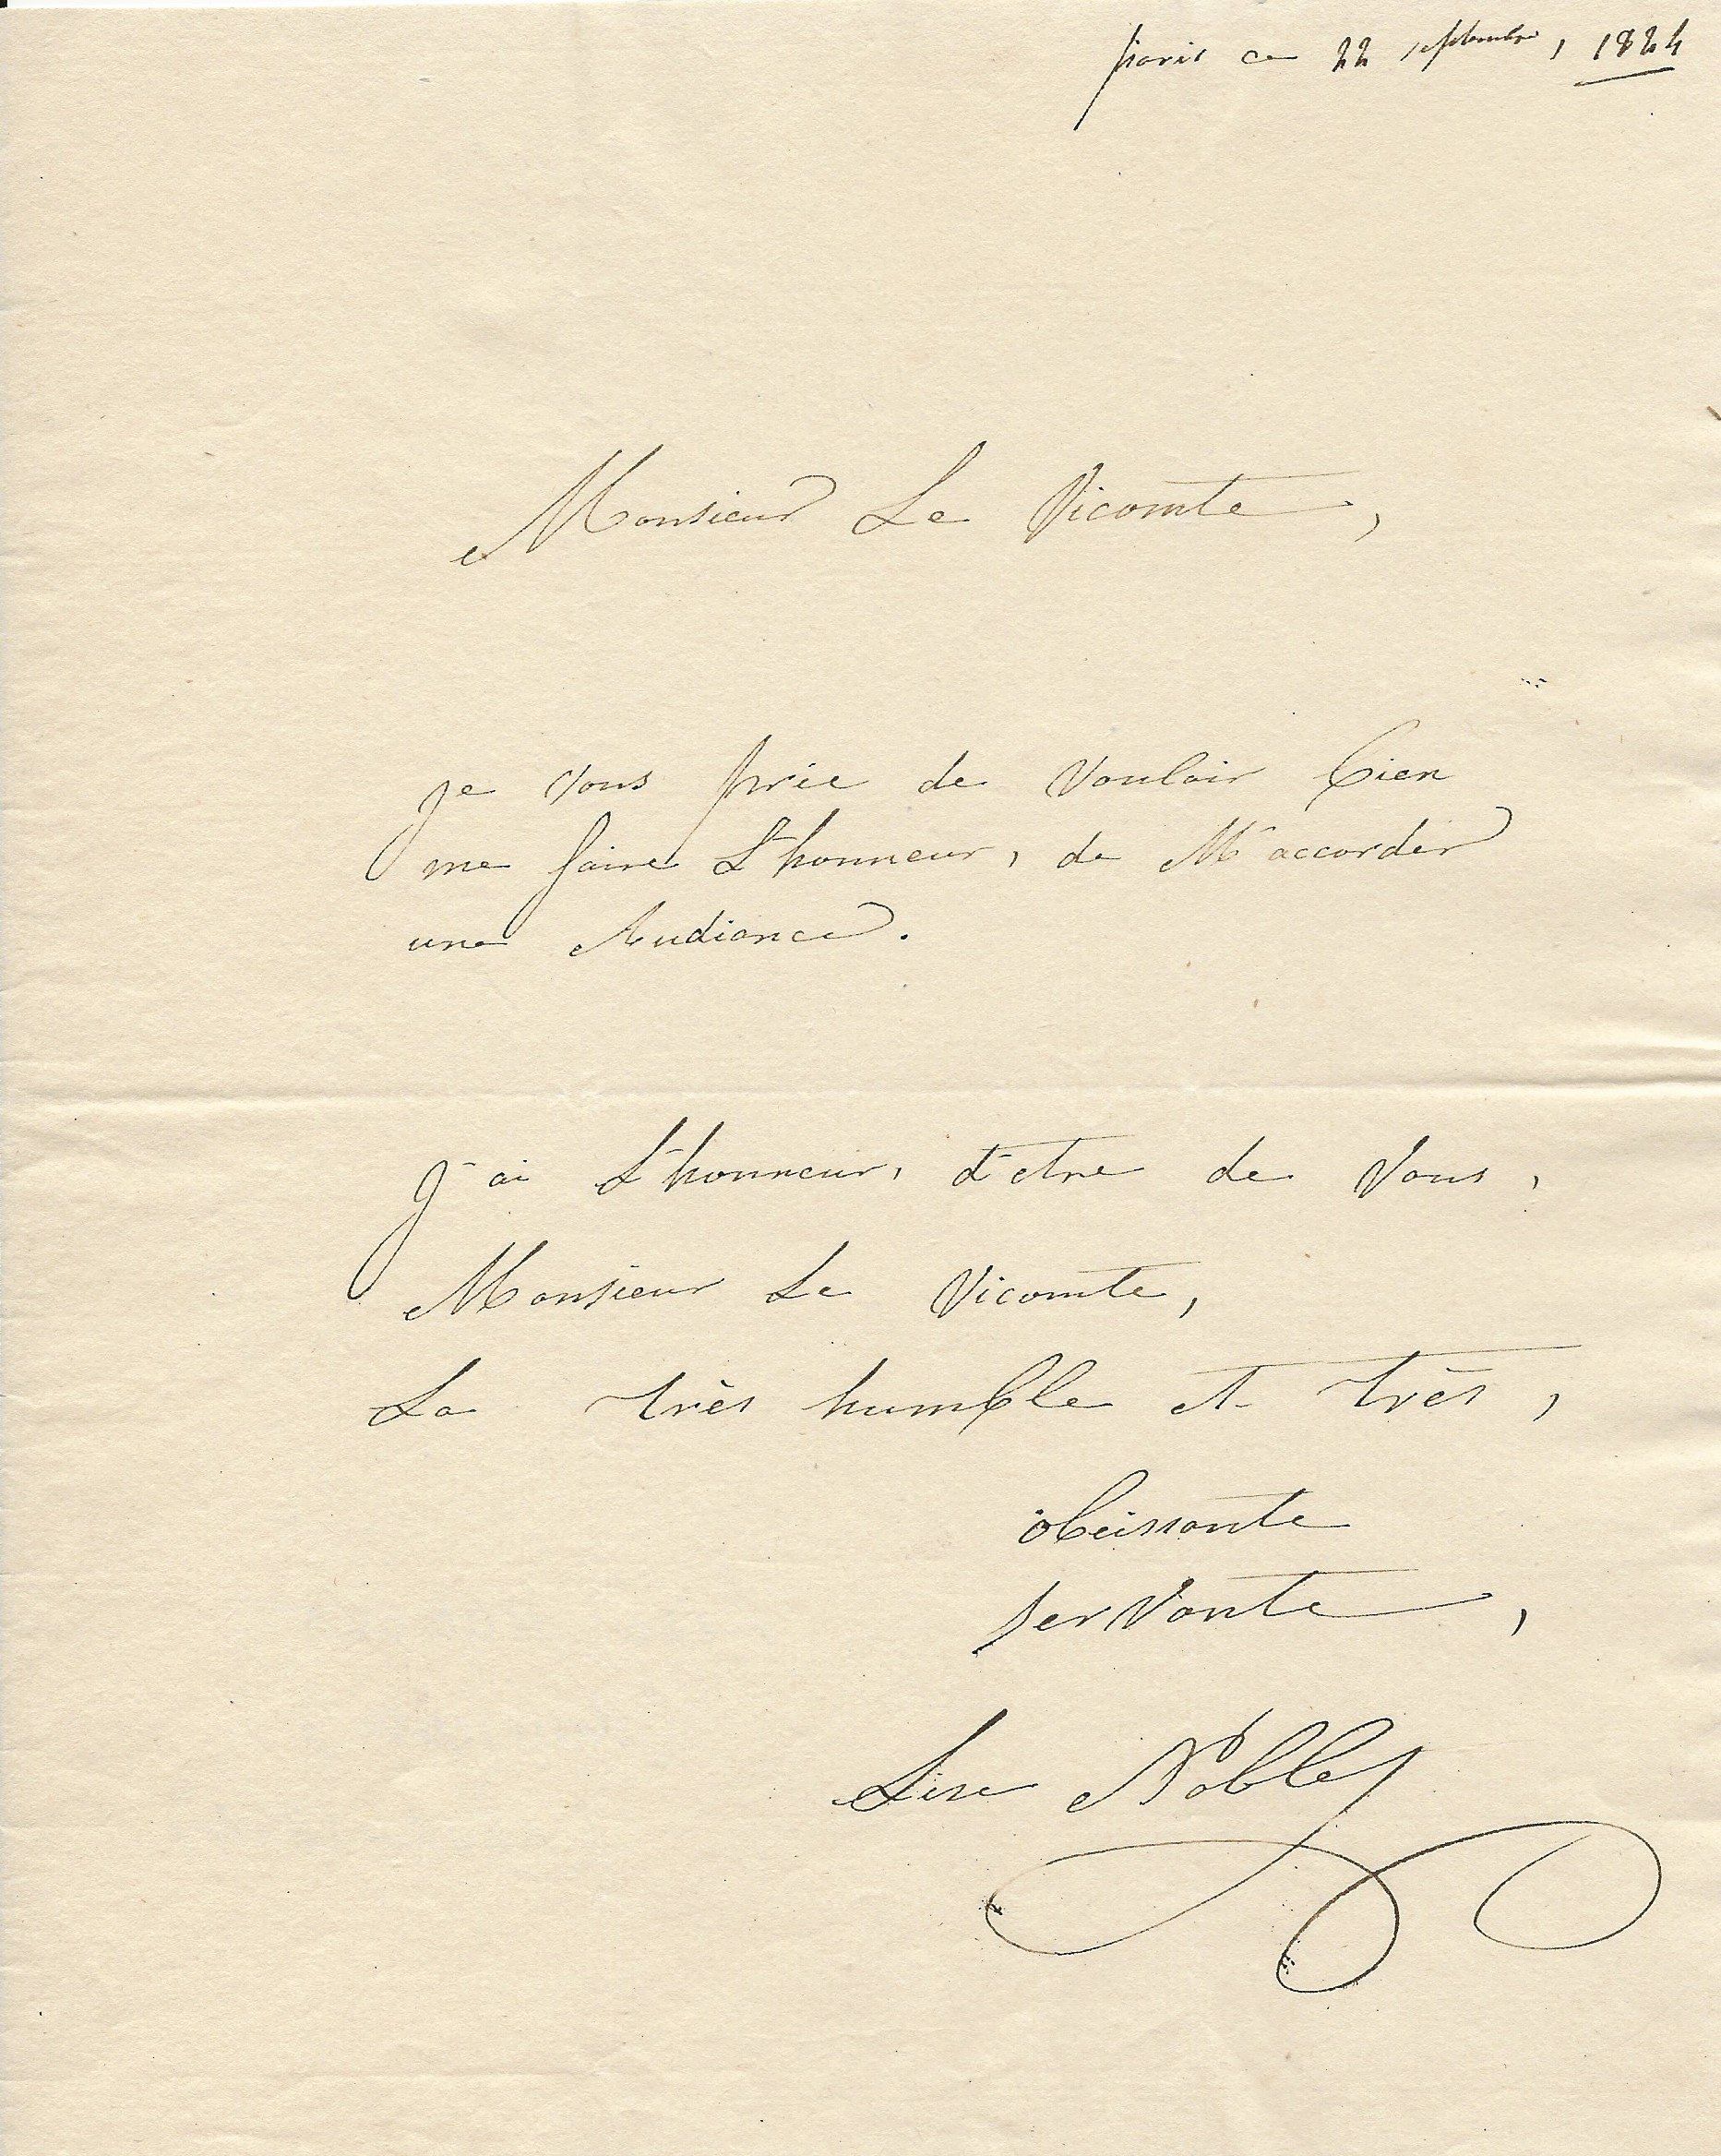 paris ce 22 septembre, 1824
Monsieur Le Vicomte,
je vous prie de Vouloir bien
me faire L'honneur, de M'accorder
une Audiance.
J'ai L'honneur, d'etre de Vous,
Monsieur Le Vicomte,
La très humble et très,
obeissante
serVante,
Lise Noblet